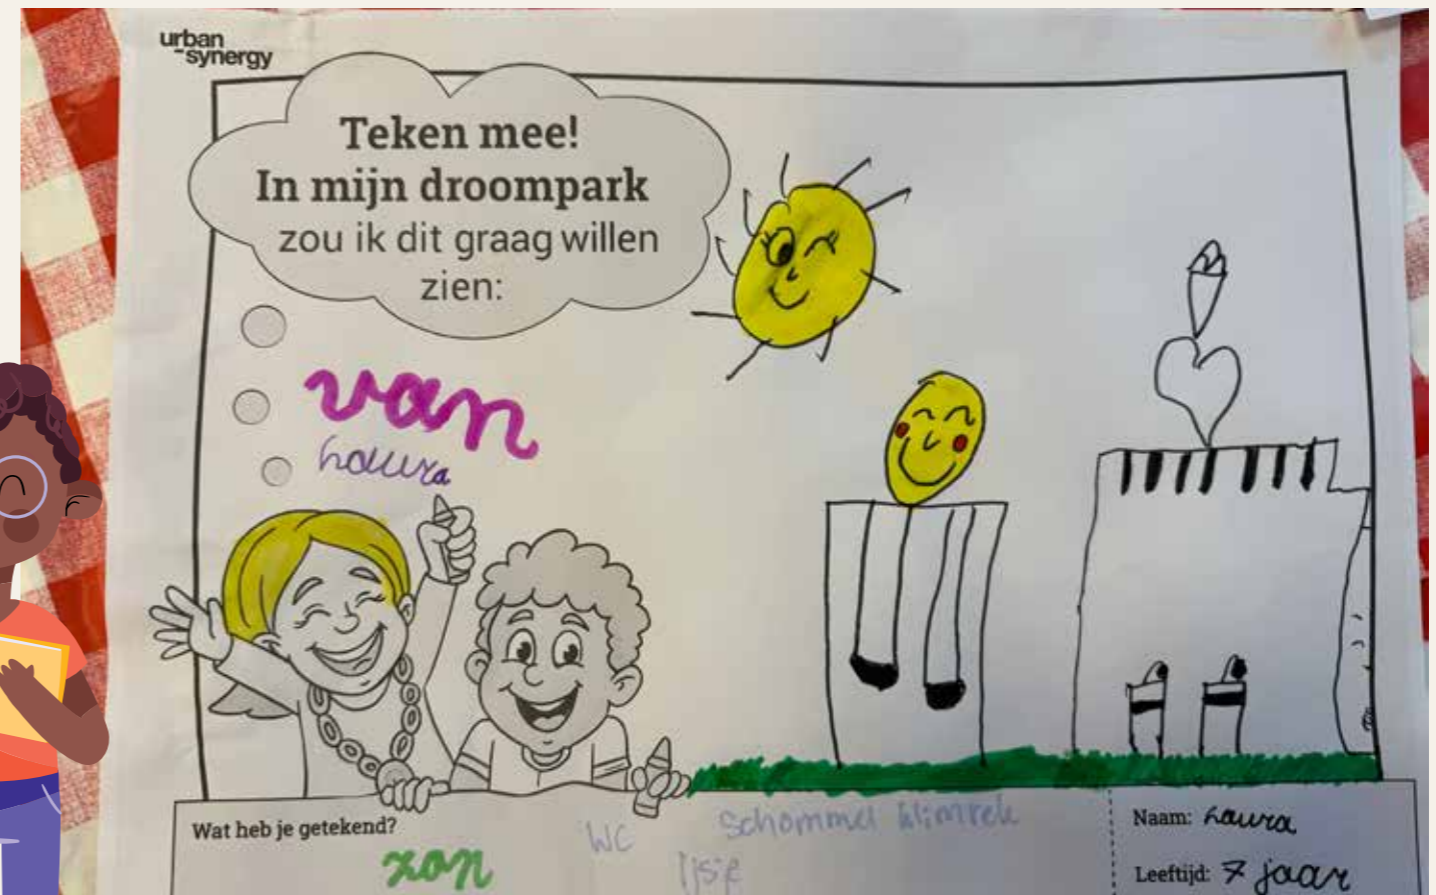 urban
synergy
Teken mee!
In mijn droompark
zou ik dit graag willen
zien:
van
Laura
Wat heb je getekend?
WC
Schommel klimrek
zon
Ijsje
Naam: Laura
Leeftijd: 7 jaar